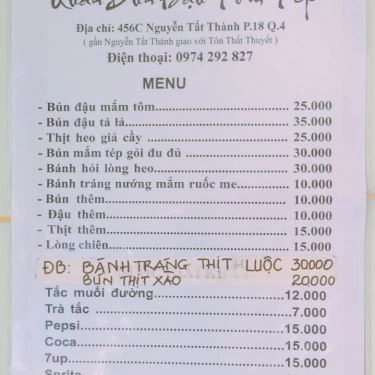 Quán Bún Đậu Mắm Tôm
Địa chỉ: 456C Nguyễn Tất Thành P.18 Q.4
( gần Nguyễn Tất Thành giao với Tôn Thất Thuyết )
Điện thoại: 0974 292 827
MENU
- Bún đậu mắm tôm.................25.000
- Bún đậu tá lả.................35.000
- Thịt heo giả cầy.................25.000
- Bún mắm tép gỏi đu đủ.................30.000
- Bánh hỏi lòng heo.................30.000
- Bánh tráng nướng mắm ruốc me.................10.000
- Bún thêm.................10.000
- Đậu thêm.................10.000
- Thịt thêm.................15.000
- Lòng chiên.................15.000
ĐB: BÁNH TRANG THỊT LUỘC 30000
BÚN THỊT XÀO 20000
Tắc muối đường.................12.000
Trà tắc.................7.000
Pepsi.................15.000
Coca.................15.000
7up.................15.000